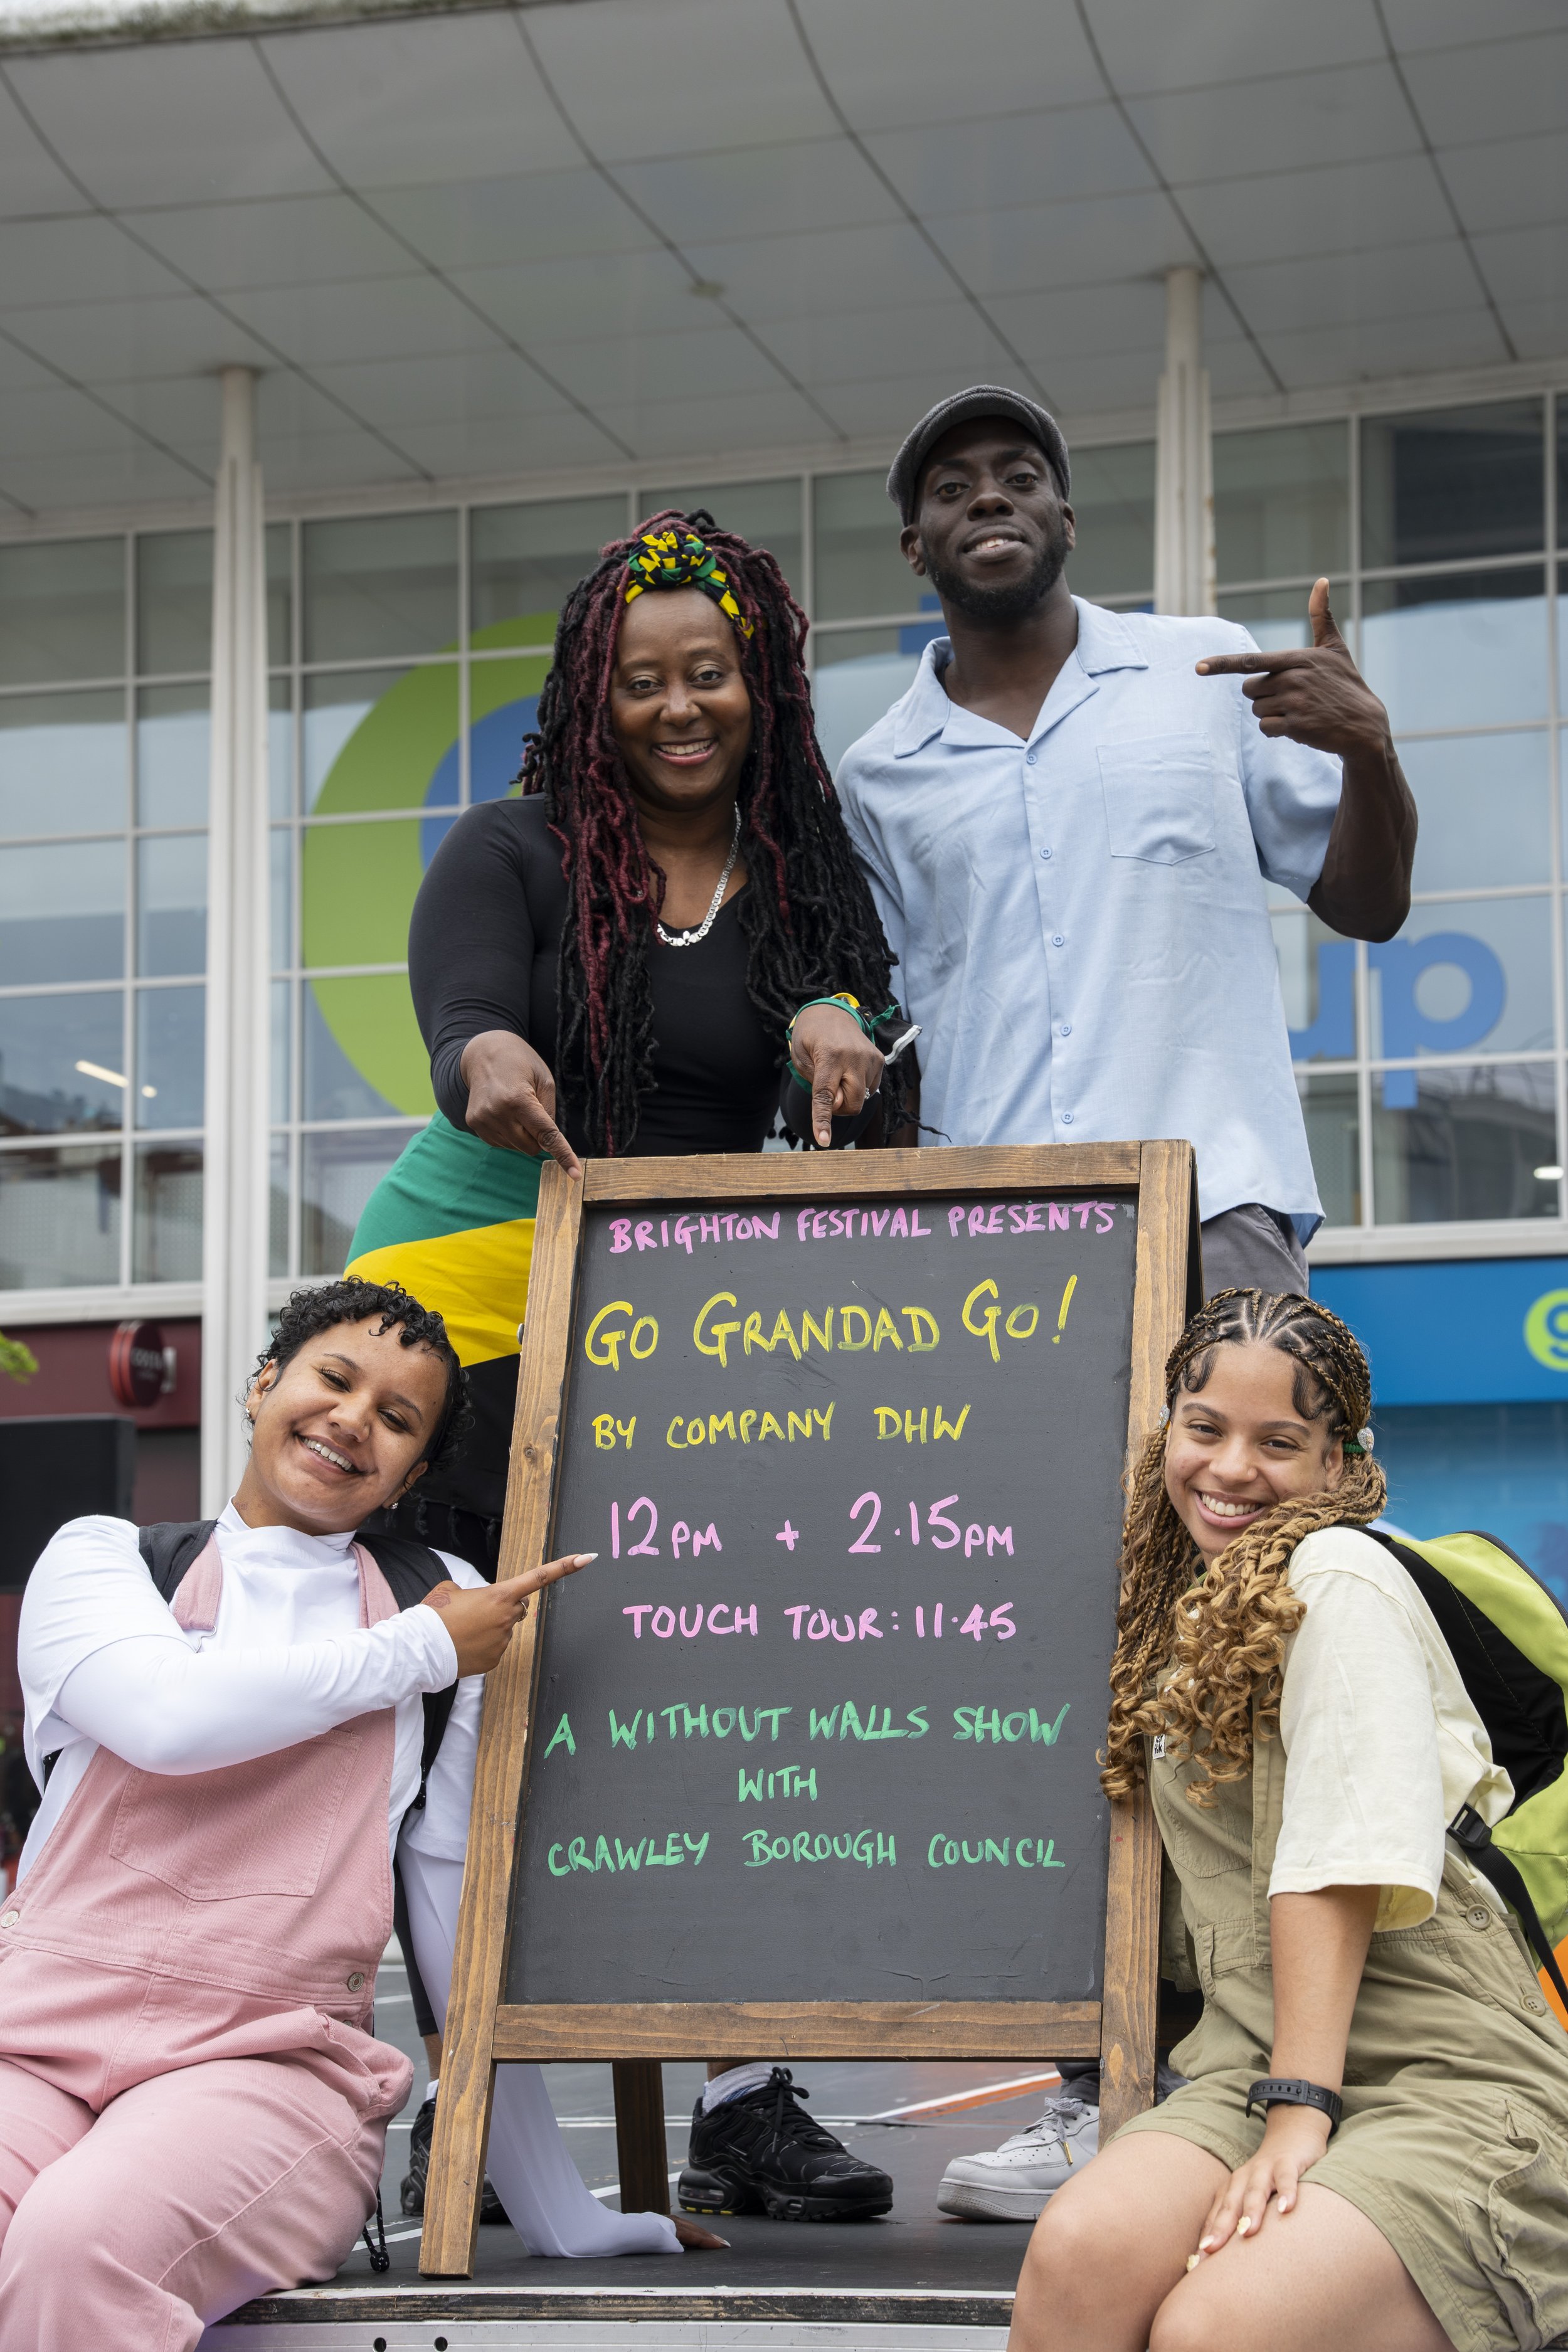 BRIGHTON FESTIVAL PRESENTS
GO GRANDAD GO!
BY COMPANY DHW
12PM + 2.15PM
TOUCH TOUR: 11.45
A WITHOUT WALLS SHOW
WITH
CRAWLEY BOROUGH COUNCIL
up
g